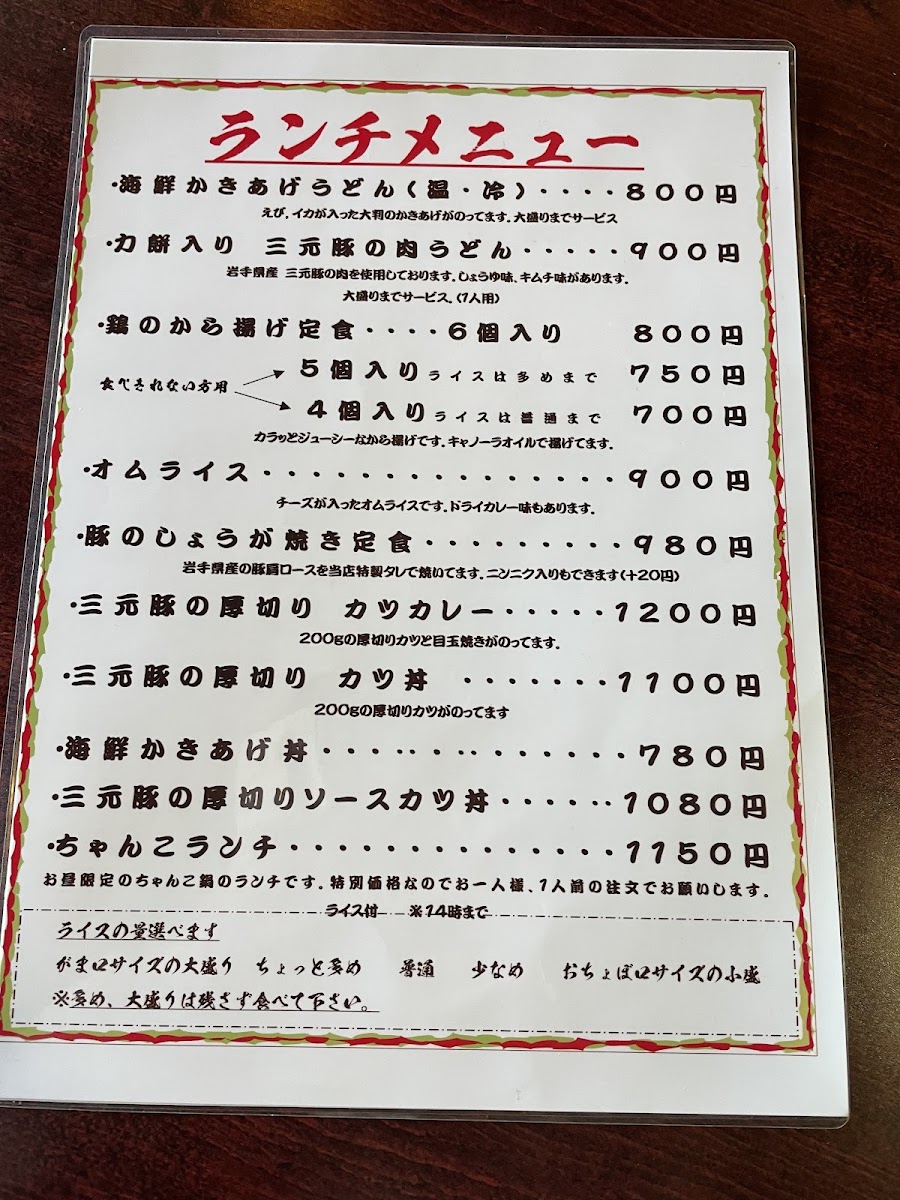 ランチメニュー
・海鮮かきあげうどん(温・冷)・・・・800円
えび、イカが入った大判のかきあげがのってます。大盛りまでサービス
・力餅入り 三元豚の肉うどん・・・・・900円
岩手県産 三元豚の肉を使用しております。しょうゆ味、キムチ味があります。
大盛りまでサービス。(1人用)
・鶏のから揚げ定食・・・・6個入り 800円
食べきれない方用
5個入りライスは多めまで 750円
4個入りライスは普通まで 700円
カラッとジューシーなから揚げです。キャノーラオイルで揚げてます。
・オムライス・・・・・・・・・・・・・・・900円
チーズが入ったオムライスです。ドライカレー味もあります。
・豚のしょうが焼き定食・・・・・・・・・980円
岩手県産の豚肩ロースを当店特製タレで焼いてます。ニンニク入りもできます(+20円)
・三元豚の厚切り カツカレー・・・・・1200円
200gの厚切りカツと目玉焼きがのってます。
・三元豚の厚切り カツ丼 ・・・・・・・1100円
200gの厚切りカツがのってます
・海鮮かきあげ丼・・・・・・・・・・・・・780円
・三元豚の厚切りソースカツ丼・・・・・・1080円
・ちゃんこランチ・・・・・・・・・・・・・・1150円
お昼限定のちゃんこ鍋のランチです。特別価格なのでお一人様、1人前の注文でお願いします。
ライス付 ※14時まで
ライスの量選べます
がま口サイズの大盛り ちょっと多め 普通 少なめ おちょぼ口サイズの小盛
※多め、大盛りは残さず食べて下さい。